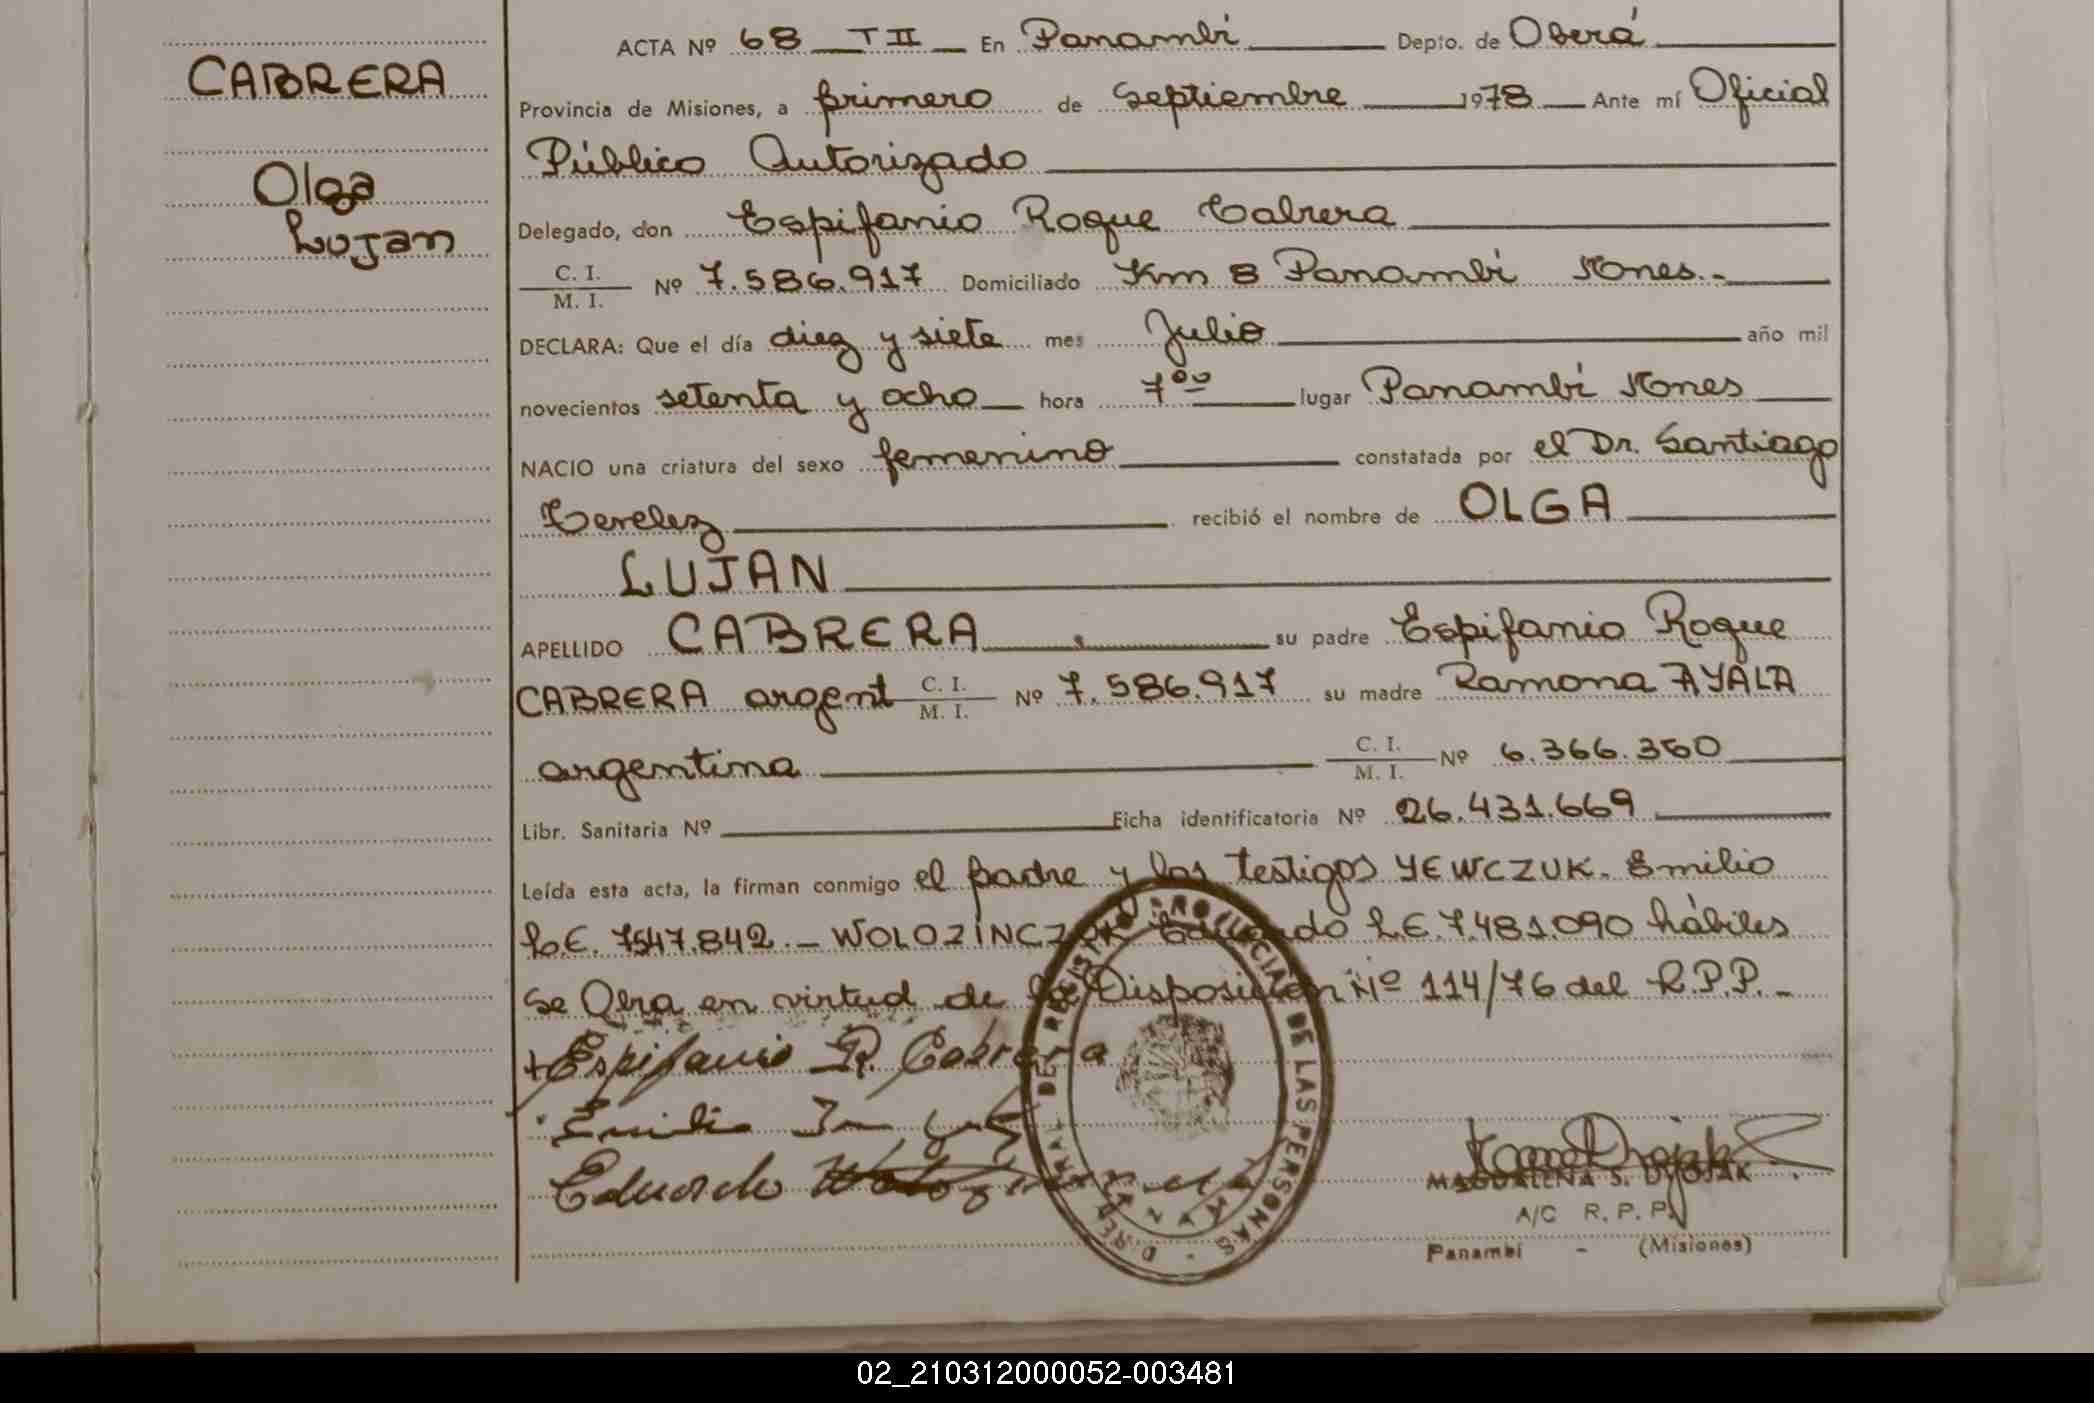 CABRERA
Olga
Lujan
ACTA Nº 68 TII En Panambí Depto. de Oberá
Provincia de Misiones, a primero de Septiembre 1978 Ante mí Oficial
Público Autorizado
Delegado, don Espifanio Roque Cabrera
C. I.
M. I. Nº 7.586.917 Domiciliado Km 8 Panambí Mones.-
DECLARA: Que el día diez y siete mes Julio año mil
novecientos setenta y ocho hora 7ºº lugar Panambí Mones
NACIO una criatura del sexo femenino constatada por el Dr. Santiago
recibió el nombre de OLGA
LUJAN
APELLIDO CABRERA su padre Espifanio Roque
CABRERA argent C. I.
M. I. Nº 7.586.917 su madre Ramona AYALA
argentina C. I.
M. I. Nº 6.366.350
Libr. Sanitaria Nº Ficha identificatoria Nº 26.431.669
Leída esta acta, la firman conmigo el padre y los testigos YEWCZUK. Emilio
L.E. 7547.842.- WOLOZINCZUK Eduardo L.E. 7.481.090 hábiles
Se Obra en virtud de la Disposición Nº 114/76 del R.P.P.-
Espifanio R. Cabrera
Emilio
Eduardo
DIRECCION GENERAL DEL REGISTRO PROVINCIAL DE LAS PERSONAS
MAGDALENA S. DYOJAK
A/C R. P. P.
Panambí - (Misiones)
02_210312000052-003481